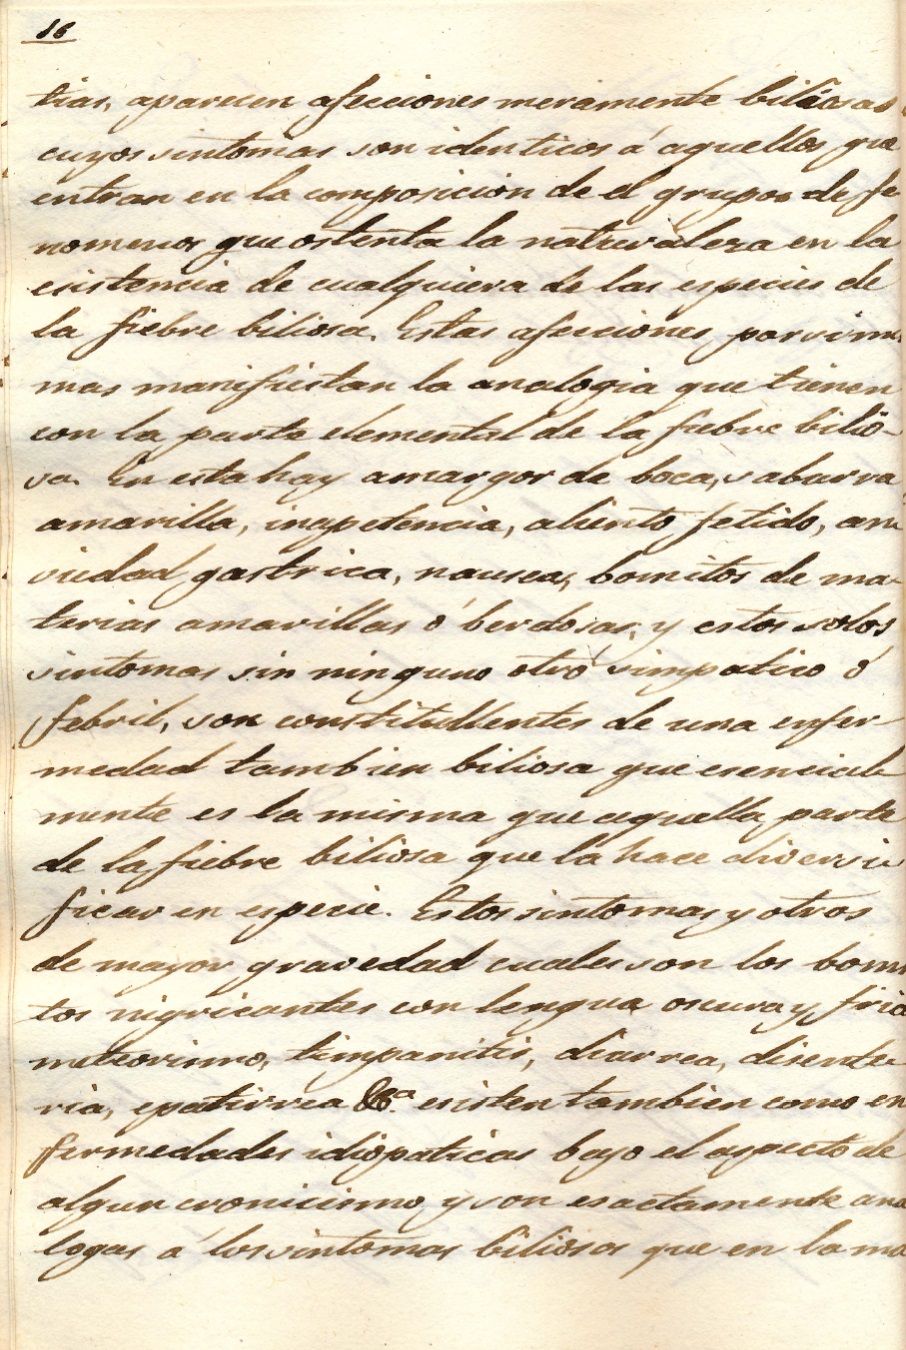 16
tias, aparecen afecciones meramente biliosas
cuyos sintomas son identicos á aquellos que
entran en la composicion de el grupo de fe
nomenos que ostenta la naturaleza en la
esistencia de cualquiera de las especies de
la fiebre biliosa. Estas afecciones por si mis
mas manifiestan la analogia que tienen
con la parte elemental de la fiebre bilio-
sa. En esta hay amargor de boca, saburra
amarilla, inapetencia, aliento fetido, an
siedad gastrica, nausea, bomitos de ma-
terias amarillas ó berdosas, y estos solos
sintomas sin ninguno otro simpatico ó
febril, son constitullentes de una enfer-
medad tambien biliosa que esencial-
mente es la misma que aquella parte
de la fiebre biliosa que la hace diversi
ficar en especie. Estos sintomas y otros
de mayor gravedad cuales son los bomi
tos nigricantes con lengua oscura y fria
meteorismo, timpanitis, diarrea, disente-
ria, epatirrea &ª. esisten tambien como en
fermedades idiopaticas bajo el aspecto de
algun cronicismo y son esactamente ana
logas á los sintomas biliosos que en la ma